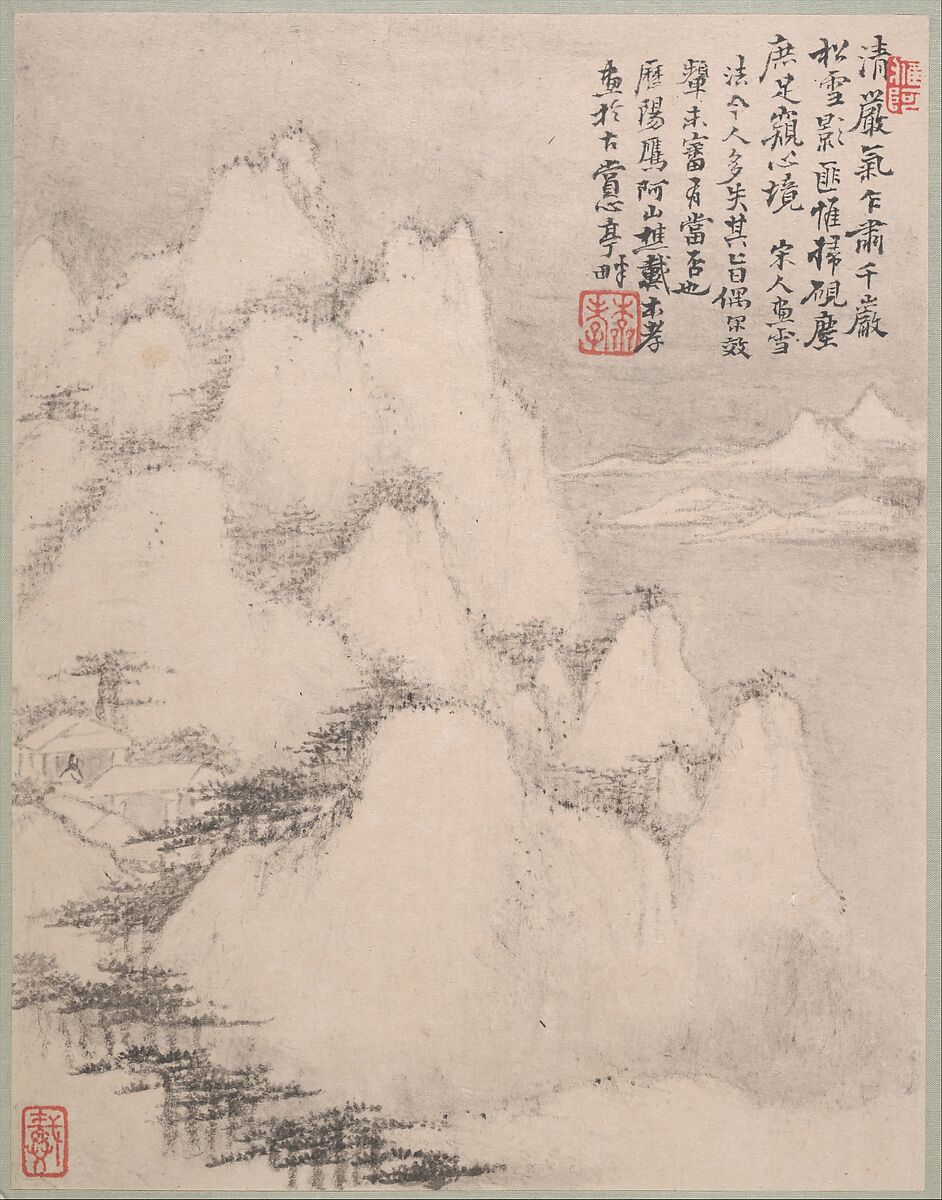 清巖氣乍肅千巖
松雪影匪惟掃硯塵
庶足窺心境　宋人畫雪
法今人多失其旨偶爾效
顰未審有當否也
歷陽鷹阿山樵戴本孝
畫於古賞心亭畔
鷹阿
本孝